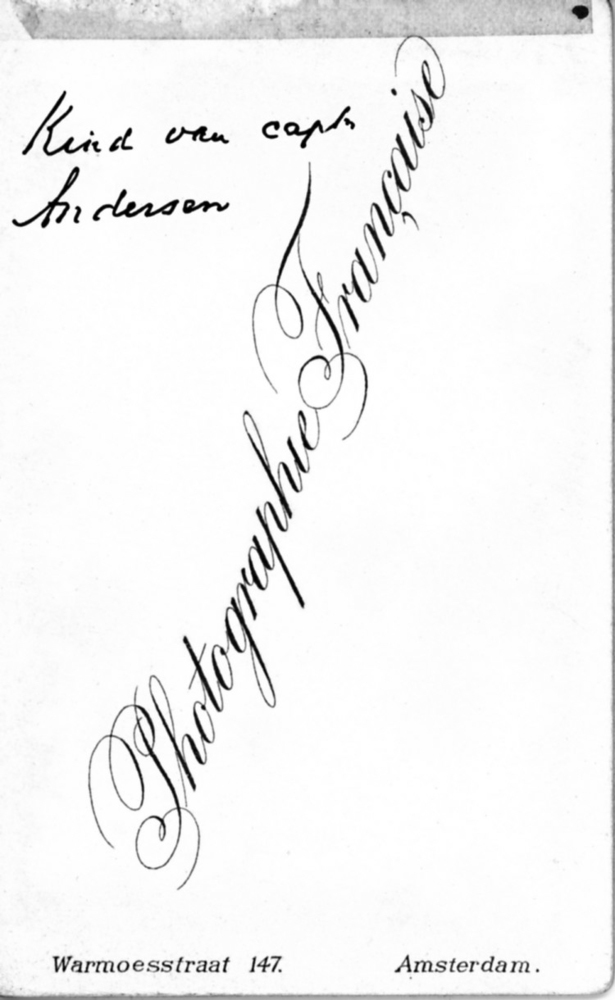 Kind van capt
Andersen
Photographie Française
Warmoesstraat 147. Amsterdam.